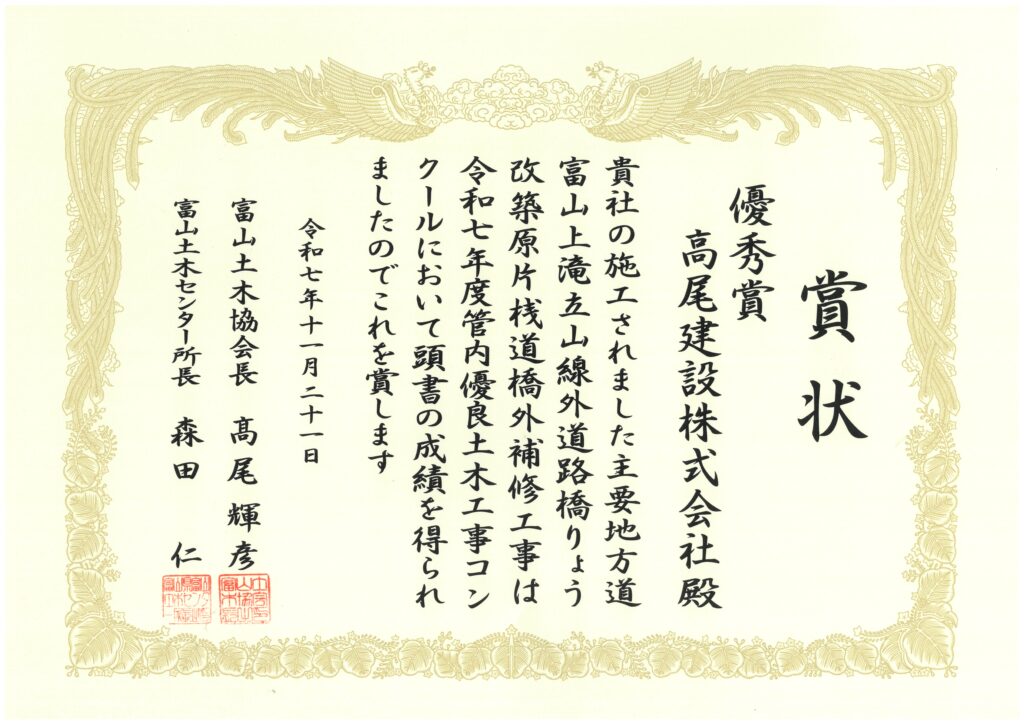 賞状
優秀賞
高尾建設株式会社殿
貴社の施工されました主要地方道
富山上滝立山線外道路橋りょう
改築原片桟道橋外補修工事は
令和七年度管内優良土木工事コン
クールにおいて頭書の成績を得られ
ましたのでこれを賞します
令和七年十一月二十一日
富山土木協会長 髙尾輝彦
富山土木センター所長 森田仁